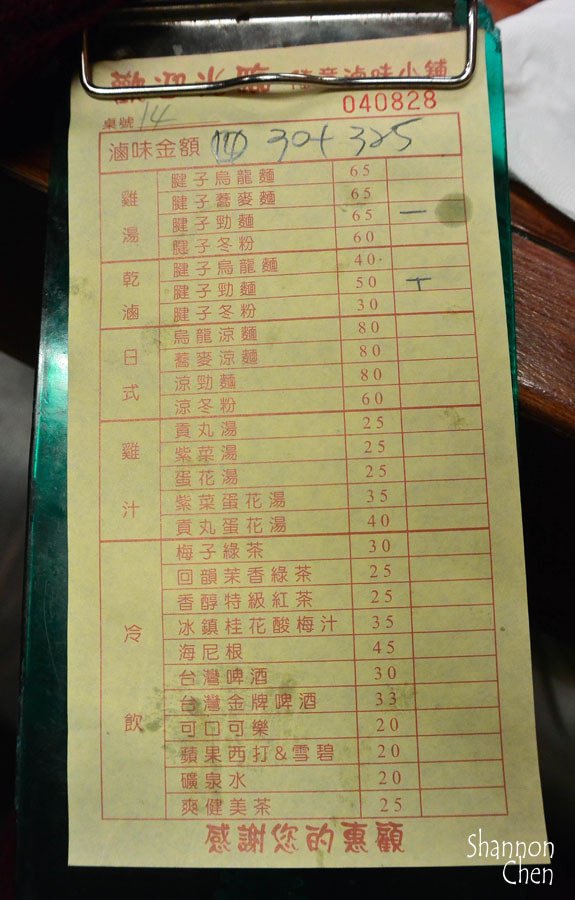 歡迎光臨 滷味小舖
040828
桌號 14
滷味金額 304 325
雞湯
腱子烏龍麵 65
腱子蕎麥麵 65
腱子勁麵 65 一
腱子冬粉 60
乾滷
腱子烏龍麵 40
腱子勁麵 50 T
腱子冬粉 30
日式
烏龍涼麵 80
蕎麥涼麵 80
涼勁麵 80
涼冬粉 60
雞汁
貢丸湯 25
紫菜湯 25
蛋花湯 25
紫菜蛋花湯 35
貢丸蛋花湯 40
冷飲
梅子綠茶 30
回韻茉香綠茶 25
香醇特級紅茶 25
冰鎮桂花酸梅汁 35
海尼根 45
台灣啤酒 30
台灣金牌啤酒 33
可口可樂 20
蘋果西打&雪碧 20
礦泉水 20
爽健美茶 25
感謝您的惠顧
Shannon
Chen